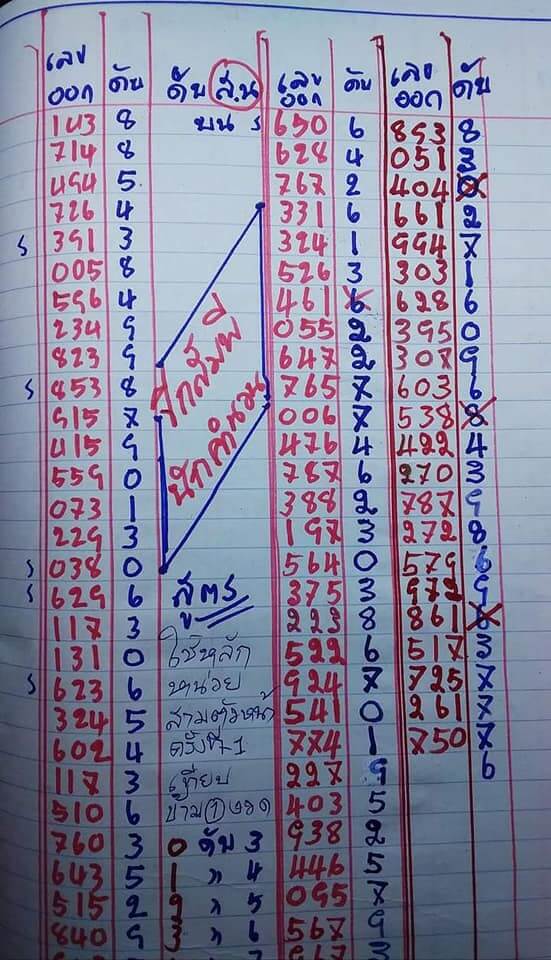 เลข ออก ดับ ดับ ส.น เลข ออก ดับ เลข ออก ดับ
143 8 บน ร 650 6 893 8
714 8 628 4 051 3
494 5 767 2 404 0
726 4 331 6 661 2
ร 391 3 324 1 994 7
005 8 526 3 303 1
596 4 461 6 628 6
234 9 055 2 395 0
823 9 647 2 307 9
ร 853 8 765 7 603 6
915 7 006 7 538 8
415 9 476 4 422 4
559 0 787 6 270 3
073 1 388 2 787 9
229 3 197 3 272 8
ร 038 0 564 0 579 6
ร 629 6 สูตร 375 3 972 9
117 3 223 8 861
131 0 ใช้หลัก 522 6 517 3
ร 623 6 หน่วย 924 7 725 7
324 5 สามตัวหน้า 541 0 261 7
602 4 ครั้งที่-1 774 1 750 7
117 3 เทียบ 227 9 6
510 6 ข้าม 1 งวด 403 5
760 3 0 ดับ 3 938 2
643 5 1 " 4 446 5
515 2 2 " 5 095 7
840 9 3 " 6 567 9
นักคำนวน